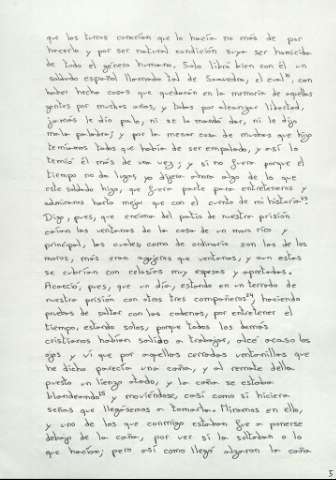 que los turcos conocían que lo hacía no más de por
hacerlo y por ser natural condición suya ser homicida
de todo el género humano. Sólo libró bien con él un
soldado español llamado tal de Saavedra, el cual, con
haber hecho cosas que quedarán en la memoria de aquellas
gentes por muchos años, y todas por alcanzar libertad,
jamás le dio palo, ni se lo mandó dar, ni le dijo
mala palabra; y por la menor cosa de muchas que hizo
temíamos todos que había de ser empalado, y así lo
temió él más de una vez; y si no fuera porque el
tiempo no da lugar, yo dijera ahora algo de lo que
este soldado hizo, que fuera parte para entreteneros y
admiraros harto mejor que con el cuento de mi historia.
Digo, pues, que encima del patio de nuestra prisión
caían las ventanas de la casa de un moro rico y
principal, las cuales como de ordinario son las de los
moros, más eran agujeros que ventanas, y aun estas
se cubrían con celosías muy espesas y apretadas.
Acaeció, pues, que un día, estando en un terrado de
nuestra prisión con otros tres compañeros, haciendo
pruebas de saltar con las cadenas, por entretener el
tiempo, estando solos, porque todos los demás
cristianos habían salido a trabajar, alcé acaso los
ojos y vi que por aquellas cerradas ventanillas que
he dicho parecía una caña, y al remate della
puesto un lienzo atado, y la caña se estaba
blandeando²⁵ y moviéndose, casi como si hiciera
señas que llegásemos a tomarla. Miramos en ello,
y uno de los que conmigo estaban fue a ponerse
debajo de la caña, por ver si la soltaban o lo
que hacían; pero así como llegó alzaron la caña
5